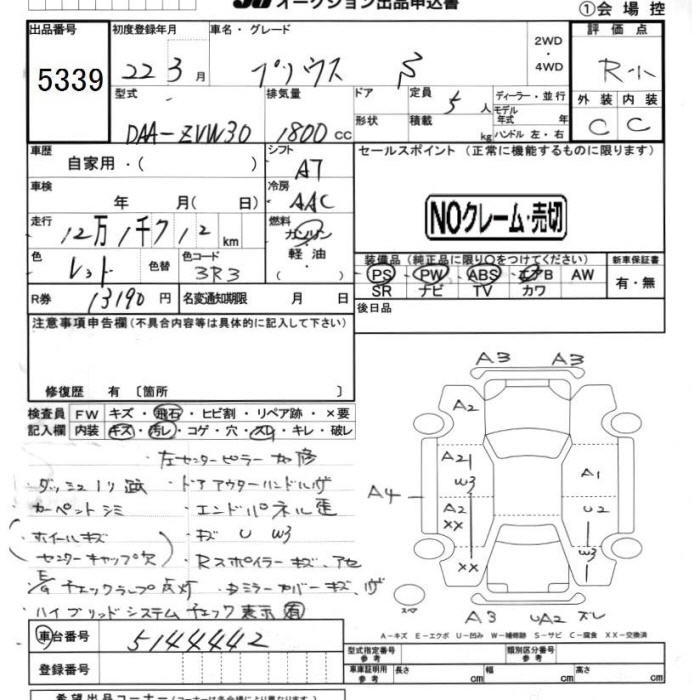 オークション出品申込書
①会場控
出品番号 初度登録年月 車名・グレード 2WD・4WD 評価点
5339 22 3月 プリウス S R-小
型式 排気量 ドア 定員 5人 ディーラー・並行 外装 内装
モデル年式 年
DAA-ZVW30 1800cc 形状 積載 kg ハンドル 左・右 C C
車歴 シフト セールスポイント (正常に機能するものに限ります)
自家用・( ) AT
車検 冷房
年 月( 日) AAC
NOクレーム・売切
走行 燃料
12万1千712km ガソリン
色 色替 色コード 軽油・( ) 装備品(純正品に限り○をつけてください) 新車保証書
レッド 3R3 PS PW ABS エアB AW 有・無
SR ナビ TV カワ
R券 13190円 名変通知期限 月 日 後日品
注意事項申告欄(不具合内容等は具体的に記入して下さい)
修復歴 有〔箇所 〕
検査員 FW キズ・飛石・ヒビ割・リペア跡・×要
記入欄 内装 キズ・汚レ・コゲ・穴・スレ・キレ・破レ
左センターピラー加修
・ダッシュノリ跡 ・ドアアウターハンドルサビ
・カーペットシミ ・エンドパネル歪
・ホイールキズ ・キズ U W3
センターキャップ欠 ・Rスポイラーキズ、アセ
・E/gチェックランプ点灯 ・ミラーカバーキズ、サビ
・ハイブリッドシステムチェック表示有
A3 A3
A2
A2 W3 A1
A4 A2 XX U2
W3
XX
スペ
A3 UA2 ズレ
A-キズ E-エクボ U-凹み W-補修跡 S-サビ C-腐食 XX-交換済
車台番号 5144442 型式指定番号 参考 類別区分番号 参考
登録番号 車庫証明用 参考 長さ cm 幅 cm 高さ cm
希望出品コーナー(コーナーは各会場により異なります)